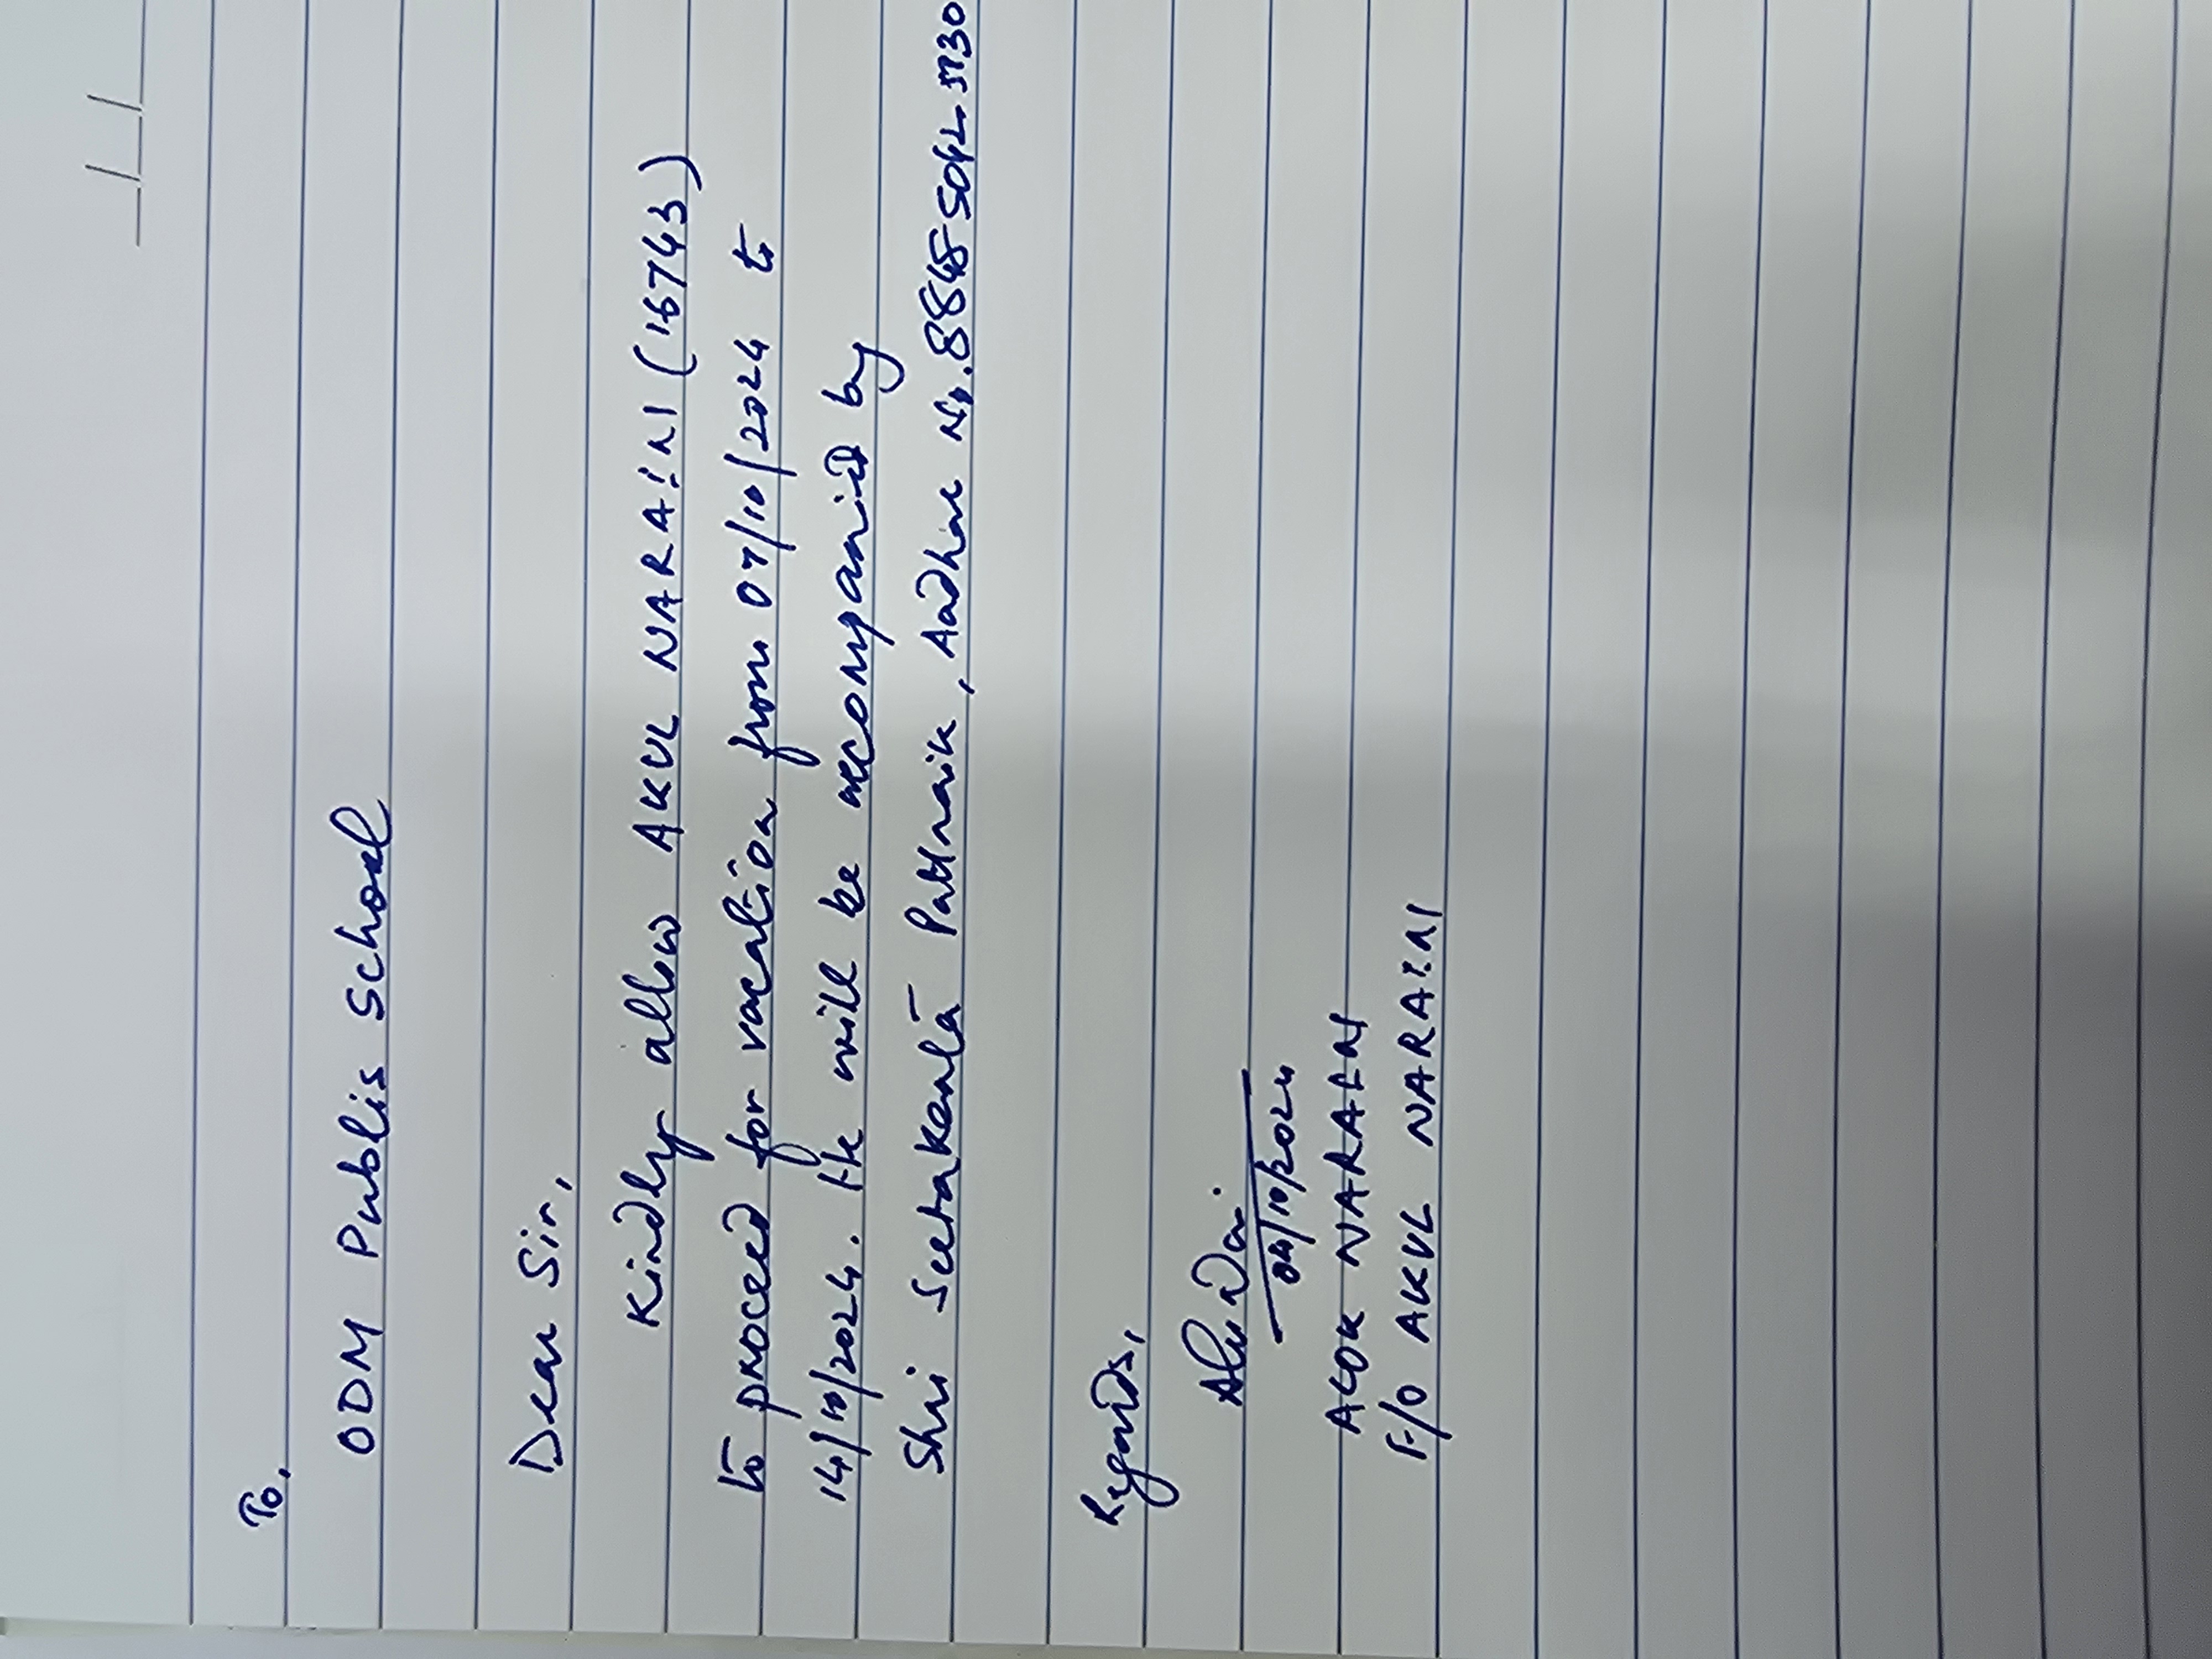 To,
ODM Publis School
Dear Sir,
Kindly allow AKUL NARAIN (16743)
to proceed for vacation from 07/10/2024 to
14/10/2024. He will be accompanied by
Shri Seetakanta Pattnaik, Aadhar No. 8845 5042
Regards,
04/10/2024
ALOK NARAIN
F/O AKUL NARAIN